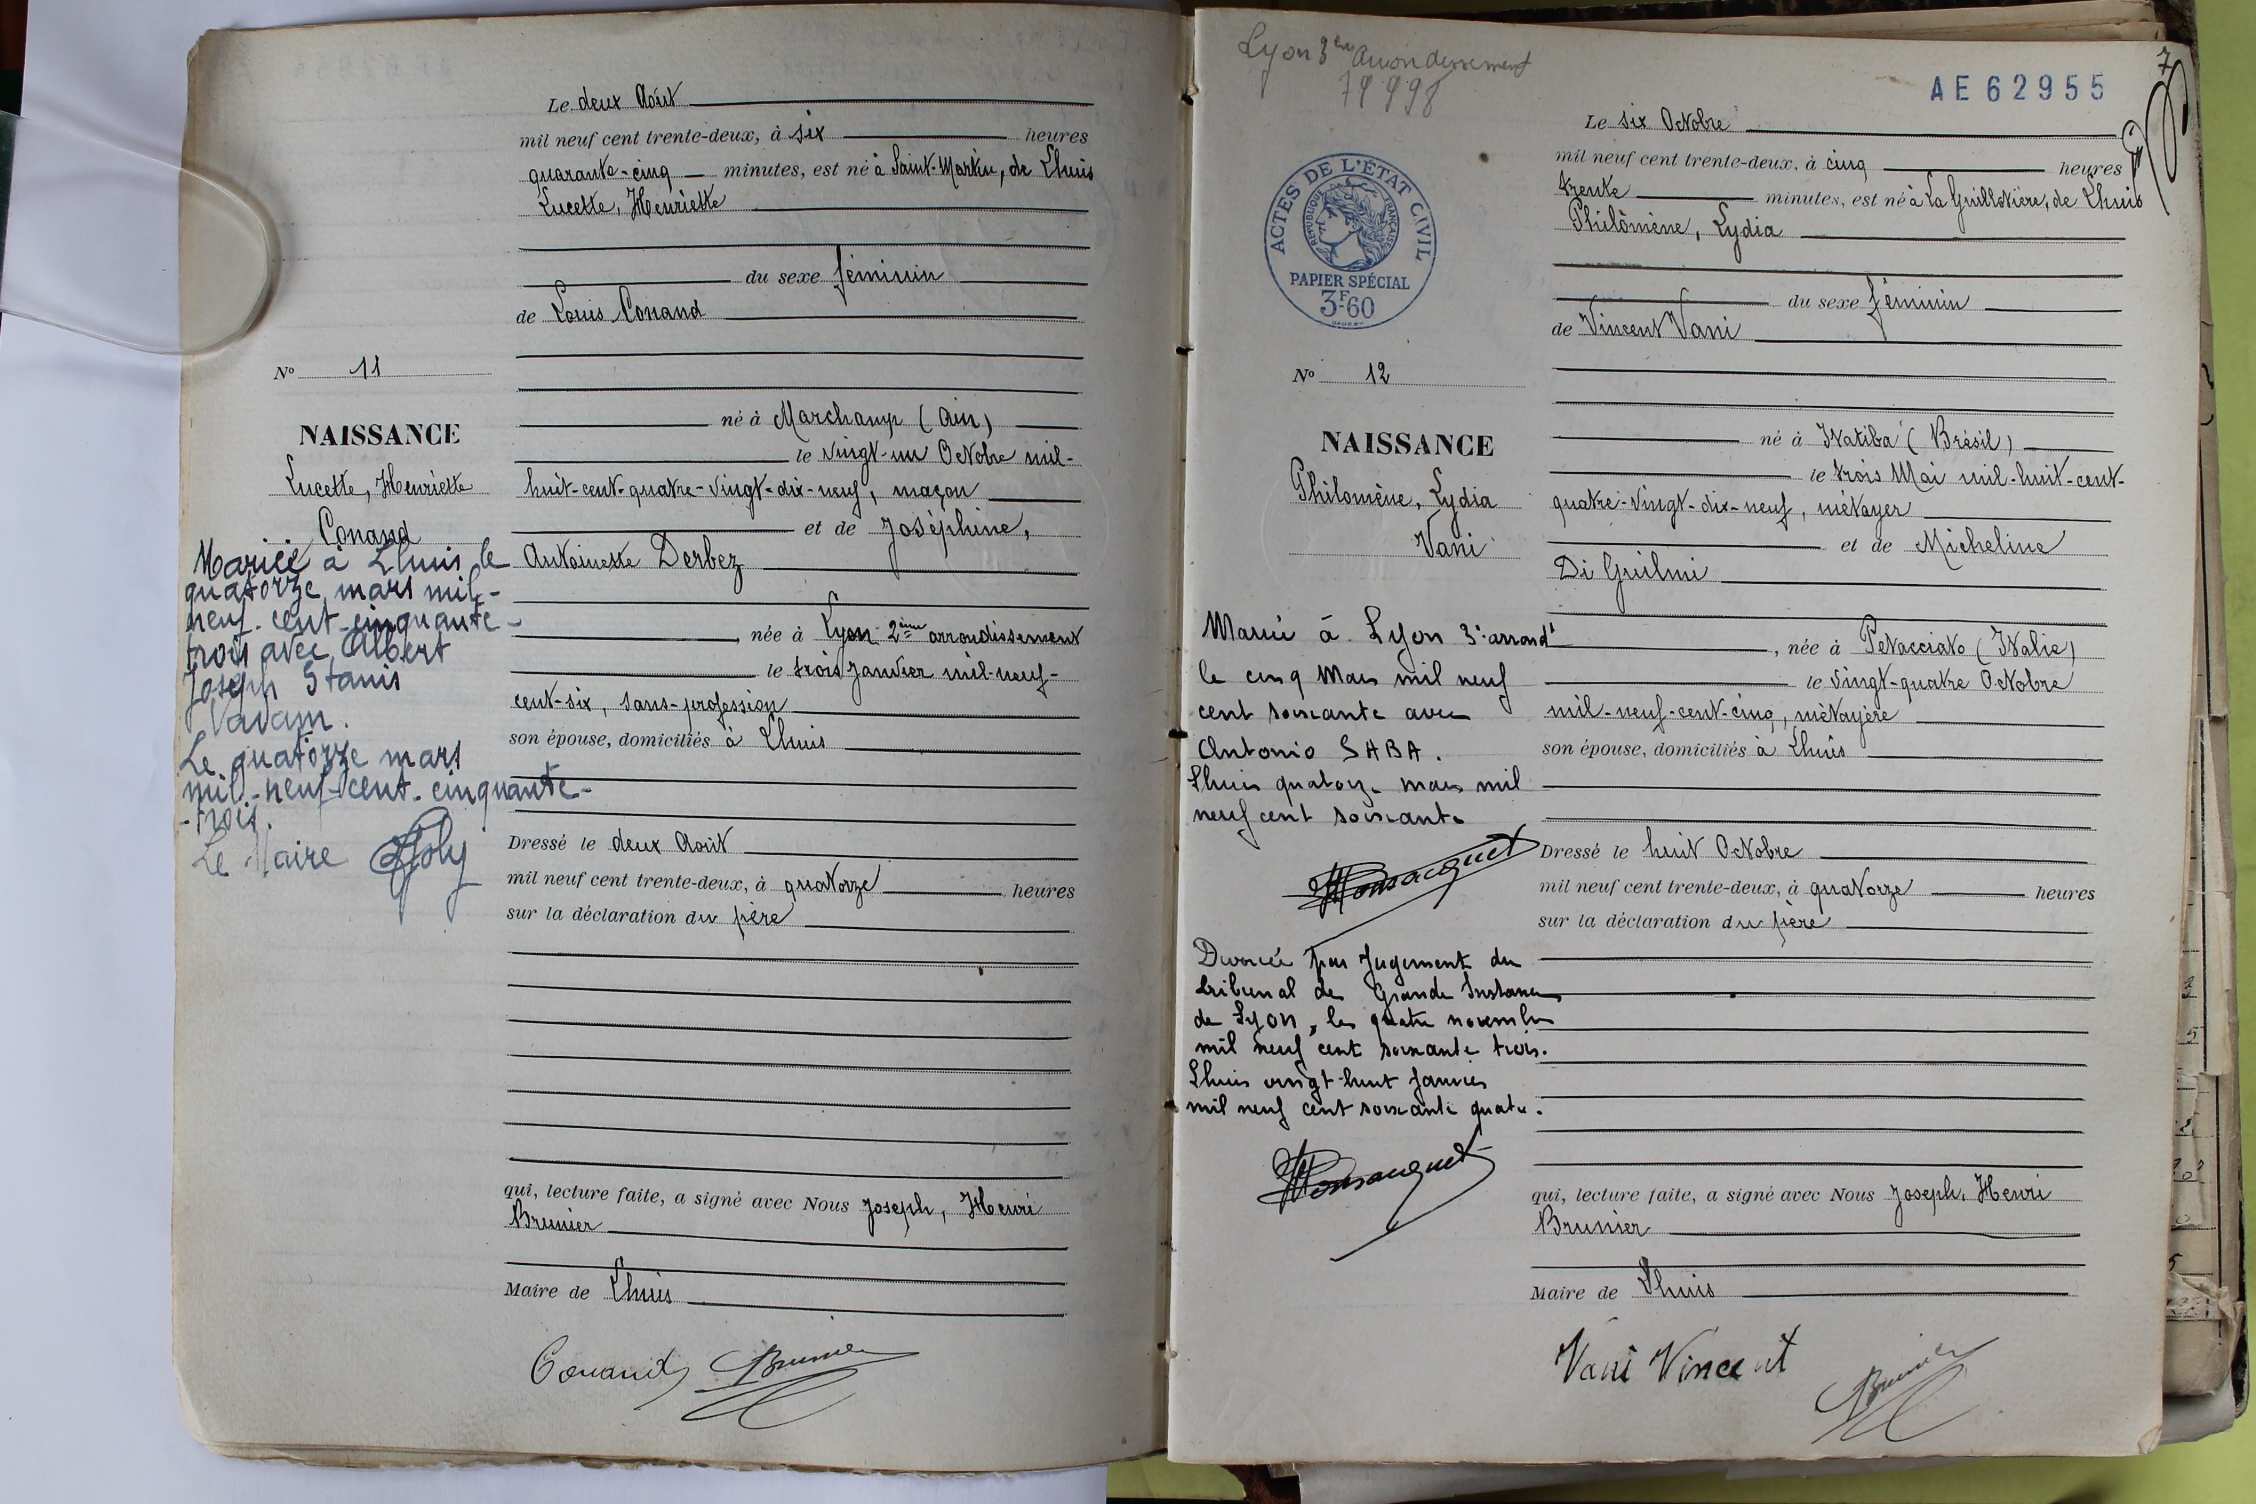 Le deux Août
mil neuf cent trente-deux, à six heures
quarante-cinq minutes, est né à Saint-Martin, de Lhuis
Lucette, Henriette
du sexe féminin
de Louis Conand
Nº 11
né à Marchamp (Ain)
le vingt-un Octobre mil-
huit-cent-quatre-vingt-dix-neuf, maçon
et de Joséphine,
Antoinette Derbez
née à Lyon 2ème arrondissement
le trois Janvier mil-neuf-
cent-six, sans-profession
son épouse, domiciliés à Lhuis
NAISSANCE
Lucette, Henriette
Conand
Mariée à Lhuis le
quatorze mars mil-
neuf-cent-cinquante-
trois avec Albert
Joseph Stanis
Vavam.
Le quatorze mars
mil-neuf-cent-cinquante-
-trois.
Le Maire Joly
Dressé le deux Août
mil neuf cent trente-deux, à quatorze heures
sur la déclaration du père
qui, lecture faite, a signé avec Nous Joseph, Henri
Brunier
Maire de Lhuis
Conand Brunier
Lyon 3ème Arrondissement
AE 62955
7
ACTES DE L'ÉTAT CIVIL
RÉPUBLIQUE FRANÇAISE
PAPIER SPÉCIAL
3F60
Le six Octobre
mil neuf cent trente-deux, à cinq heures
trente minutes, est né à La Guillotière, de Lhuis
Philômène, Lydia
du sexe féminin
de Vincent Vani
Nº 12
né à Itatiba (Brésil)
le trois Mai mil-huit-cent-
quatre-vingt-dix-neuf, métayer
et de Micheline
Di Guilmi
, née à Petacciato (Italie)
le vingt-quatre Octobre
mil-neuf-cent-cinq, métayère
son épouse, domiciliés à Lhuis
NAISSANCE
Philomène, Lydia
Vani
Mariée à Lyon 3e arrondt
le cinq Mars mil neuf
cent soixante avec
Antonio SABA.
Lhuis quatorze mars mil
neuf cent soixante
Divorcée par Jugement du
tribunal de Grande Instance
de Lyon, le quatre novembre
mil neuf cent soixante trois.
Lhuis vingt-huit Janvier
mil neuf cent soixante quatre.
Dressé le huit Octobre
mil neuf cent trente-deux, à quatorze heures
sur la déclaration du père
qui, lecture faite, a signé avec Nous Joseph, Henri
Brunier
Maire de Lhuis
Vani Vincent Brunier